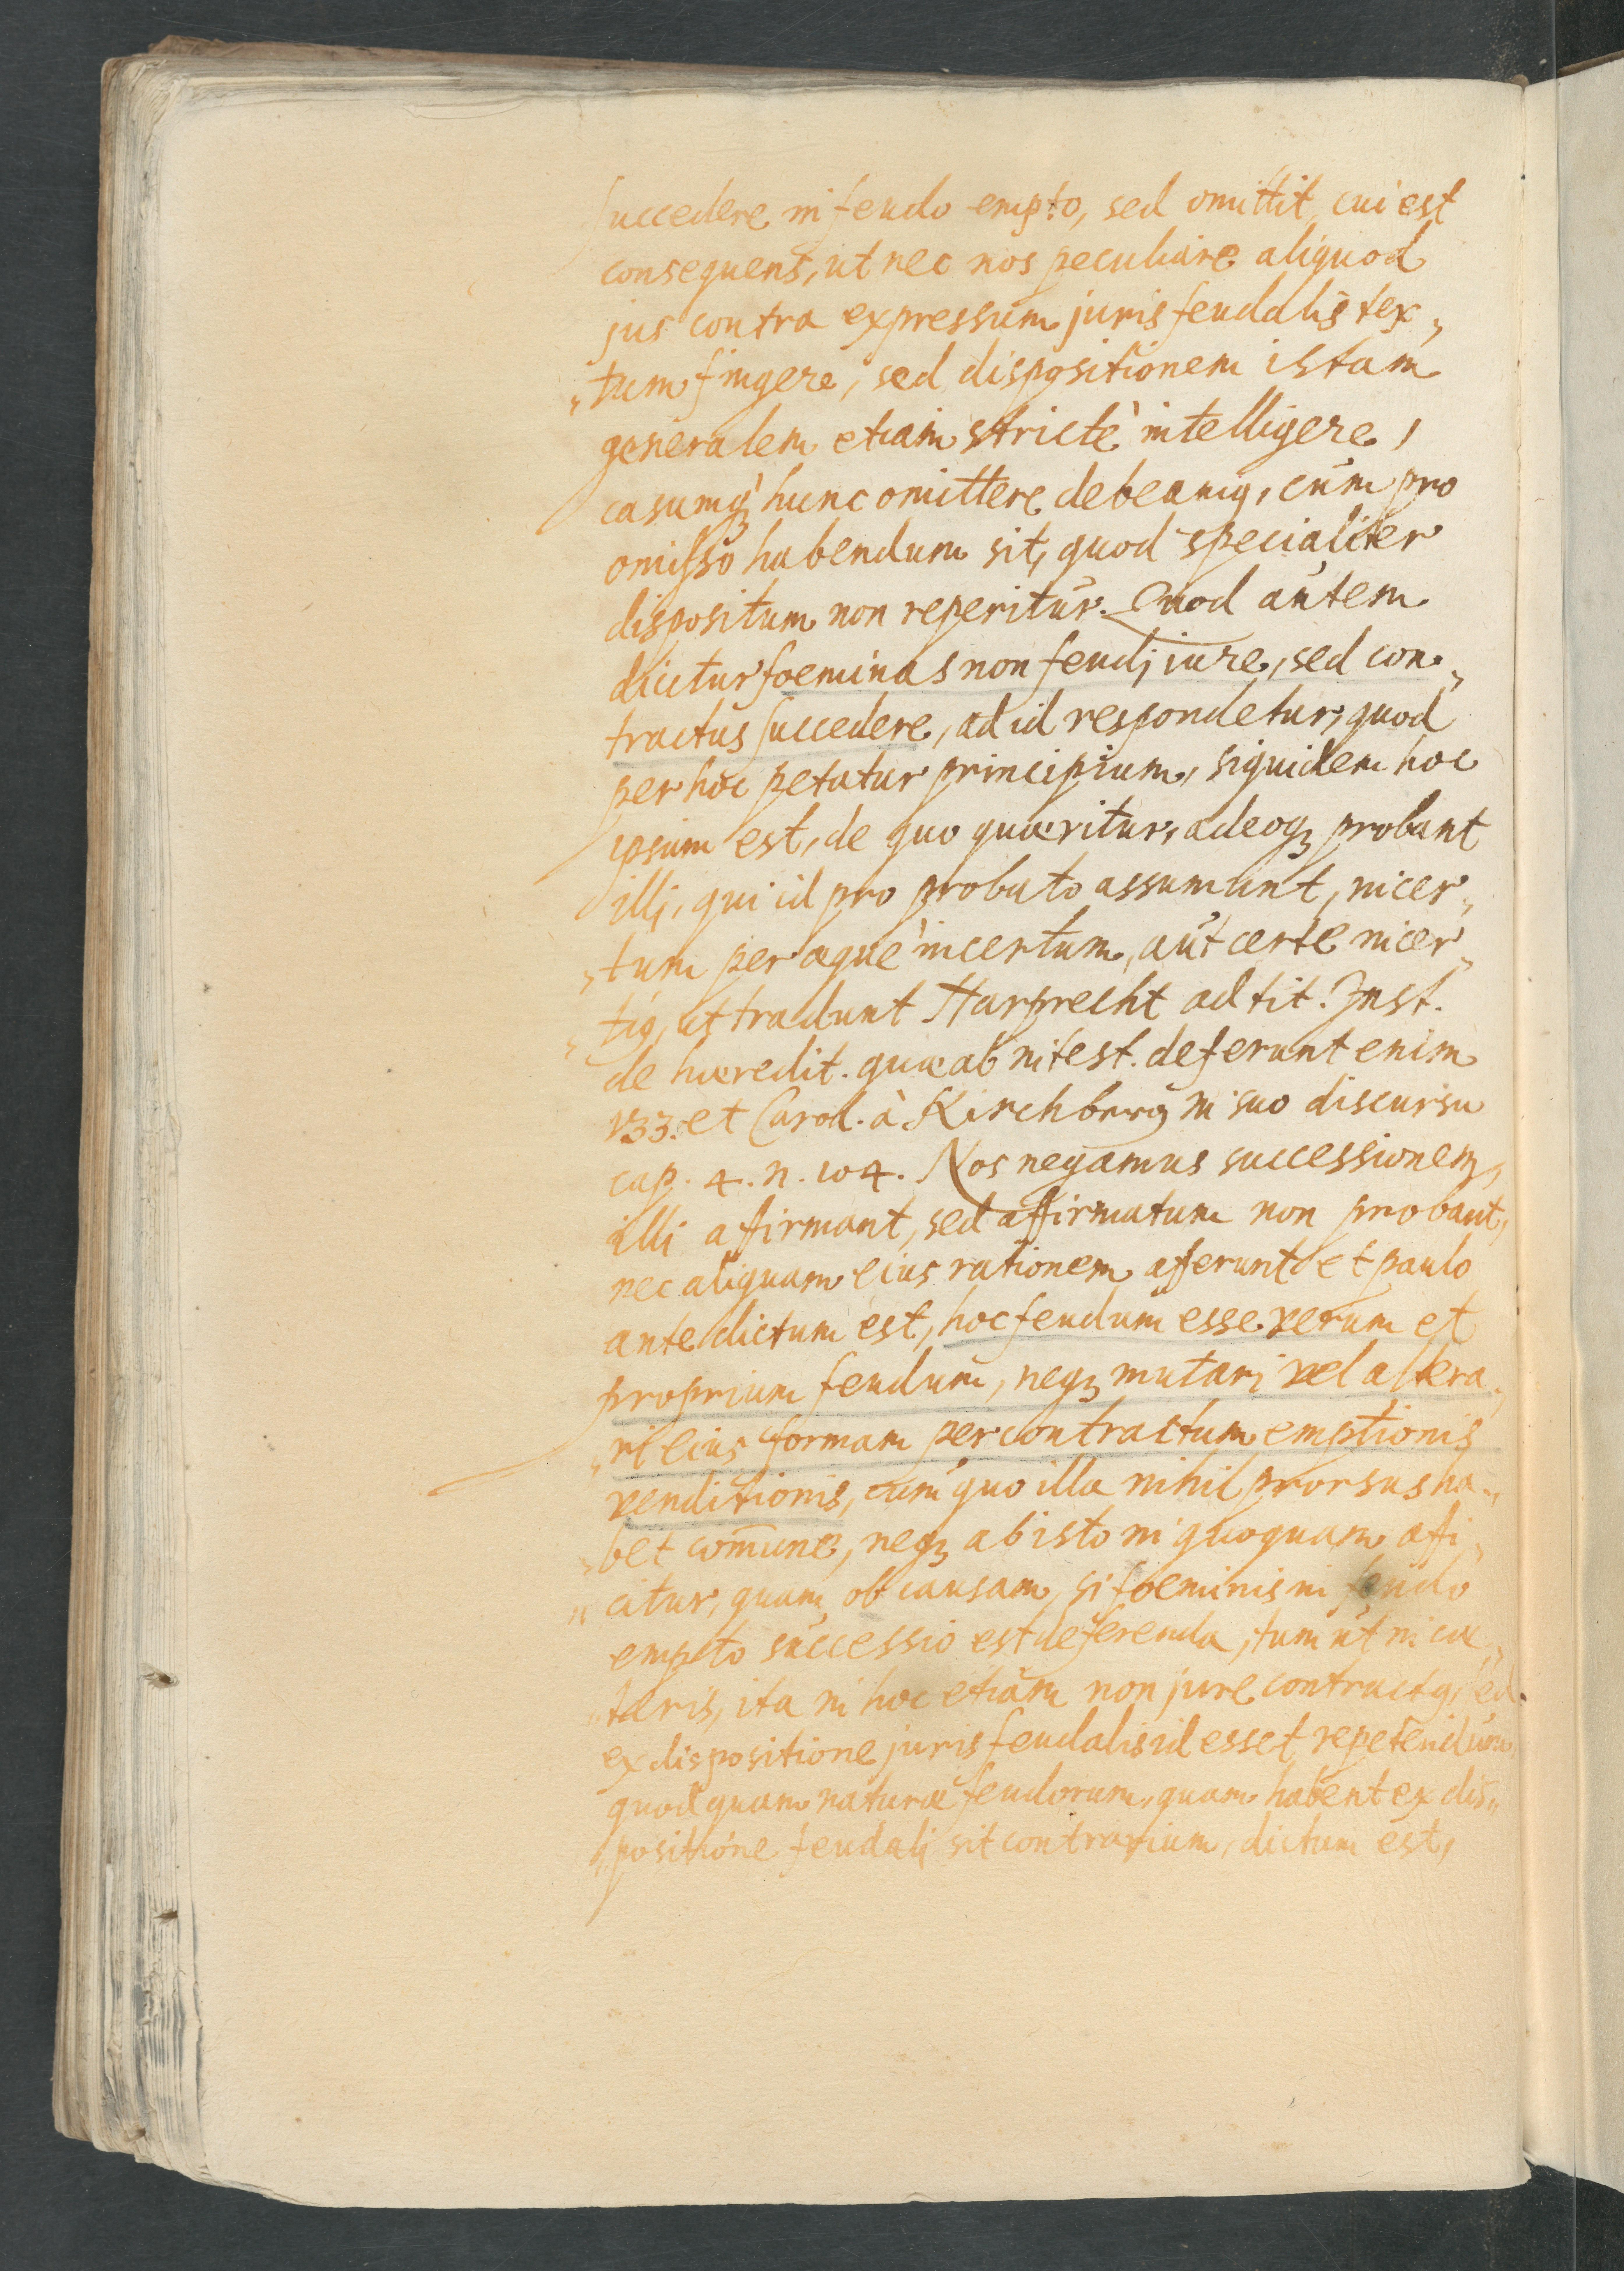 succedere in feudo empto, sed omittit, cui est
consequens, ut nec nos peculiare aliquod
jus contra expressum juris feudalis tex„
„tum fingere, sed dispositionem istam
generalem etiam strictè intelligere,
casumq; hunc omittere debeamꝰ, cùm pro
omisso habendum sit, quod specialiter
dispositum non reperitur. Quod autem
dicitur foeminas non feudj iure, sed con„
tractus succedere, ad id respondetur, quod
per hoc petatur principium, siquidem hoc
ipsum est, de quo quæritur, adeoq; probant
illj, qui id pro probato assumunt, incer„
„tum per æquè incertum, aut certe incer„
„tiꝰ, ut tradunt Harprecht ad tit. Inst.
de hæredit. quæ ab intest. deferunt enim
133. et Carol. à Kirchberg in suo discursu
cap. 4. n. 104. Nos negamus successionem,
illi affirmant, sed affirmatum non probant,
nec aliquam eius rationem afferunt et paulo
ante dictum est, hoc feudum esse verum et
proprium feudum, neq; mutarj vel altera„
„ri eius formam per contractum emptionis
venditionis, cum quo illa nihil prorsus ha„
„bet com̄une, neq; ab isto in quoquam affi„
„citur, quam ob causam, si foeminis in feudo
empto successio est deferenda, tum ut in cæ„
„teris, ita in hoc etiam non jure contractꝰ, sed
ex dispositione juris feudalis id esset repetendum,
quod quam naturæ feudorum, quam habent ex dis„
„positione feudalj sit contrarium, dictum est,